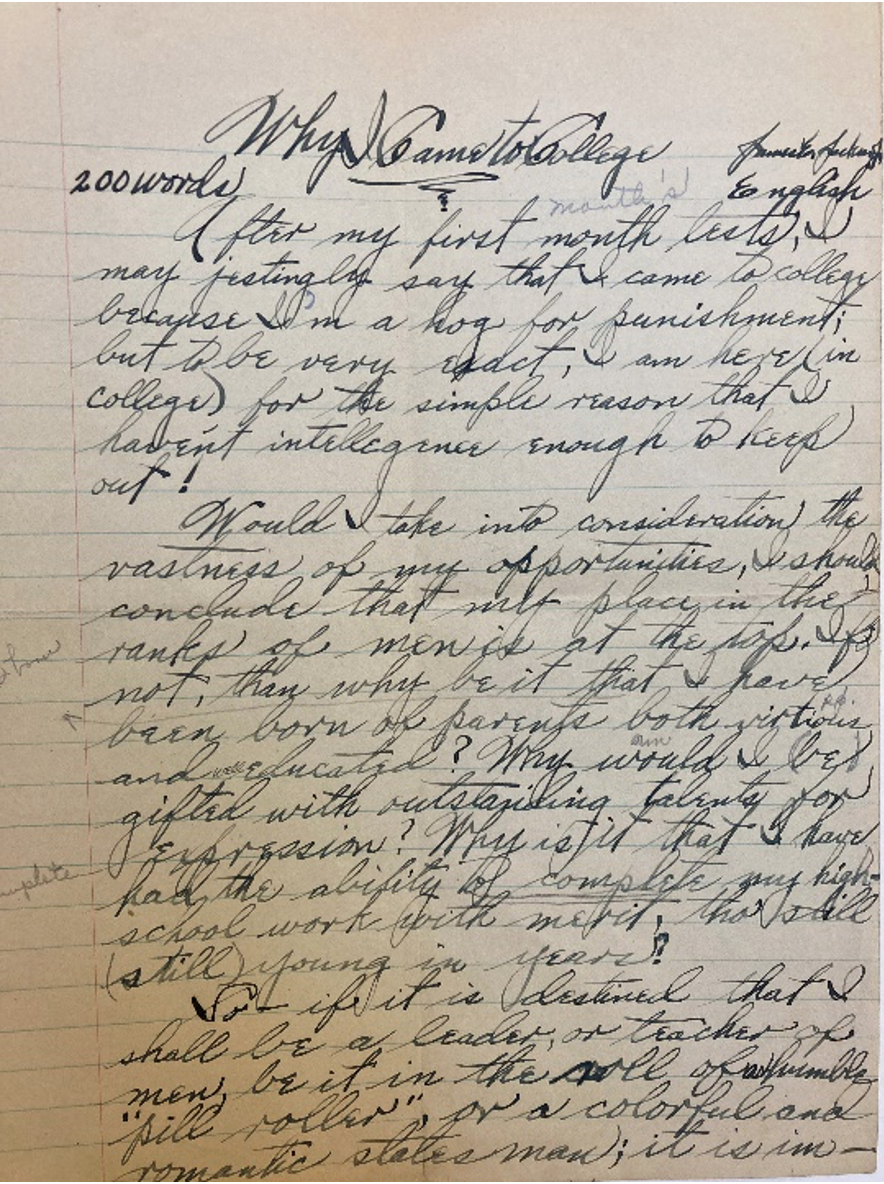 Why I Came to College
200 words
English
month's
After my first month tests, I
may jestingly say that I came to college
because I'm a hog for punishment;
but to be very exact, I am here (in
college) for the simple reason that I
haven't intellegence enough to keep
out!
Would I take into consideration the
vastness of my opportunities, I should
conclude that my place in the
ranks of men is at the top. If
not, than why be it that I have
been born of parents both virtious
and well educated? Why would I (be)
am
gifted with outstanding talents for
expression? Why is it that I have
had the ability to complete my high-
school work with merit, tho' still
(still) young in years?
So - if it is destined that I
shall be a leader, or teacher of
men, be it in the roll of a humble
"pill roller", or a colorful and
romantic statesman; it is im-